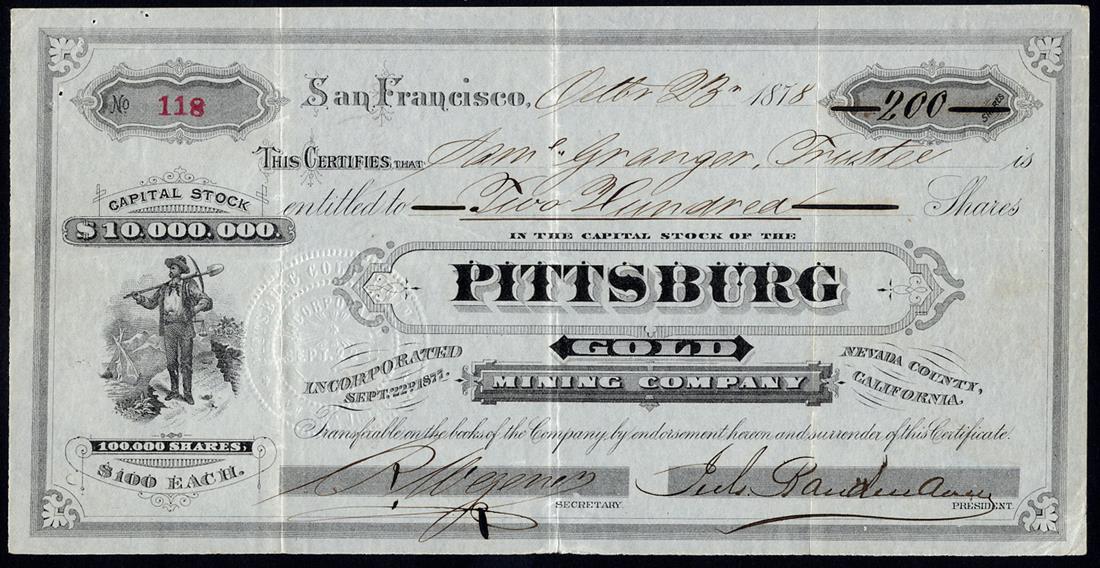 No 118
San Francisco, Octbr 23rd 1878
200 SHARES
THIS CERTIFIES THAT Saml. Granger, Trustee is
entitled to Two Hundred Shares
CAPITAL STOCK
$10,000,000.
IN THE CAPITAL STOCK OF THE
PITTSBURG
GOLD
MINING COMPANY
INCORPORATED
SEPT. 22D 1877.
NEVADA COUNTY,
CALIFORNIA.
Transferable on the books of the Company, by endorsement hereon and surrender of this Certificate.
100,000 SHARES,
$100 EACH.
R. Wegener
SECRETARY.
PRESIDENT.